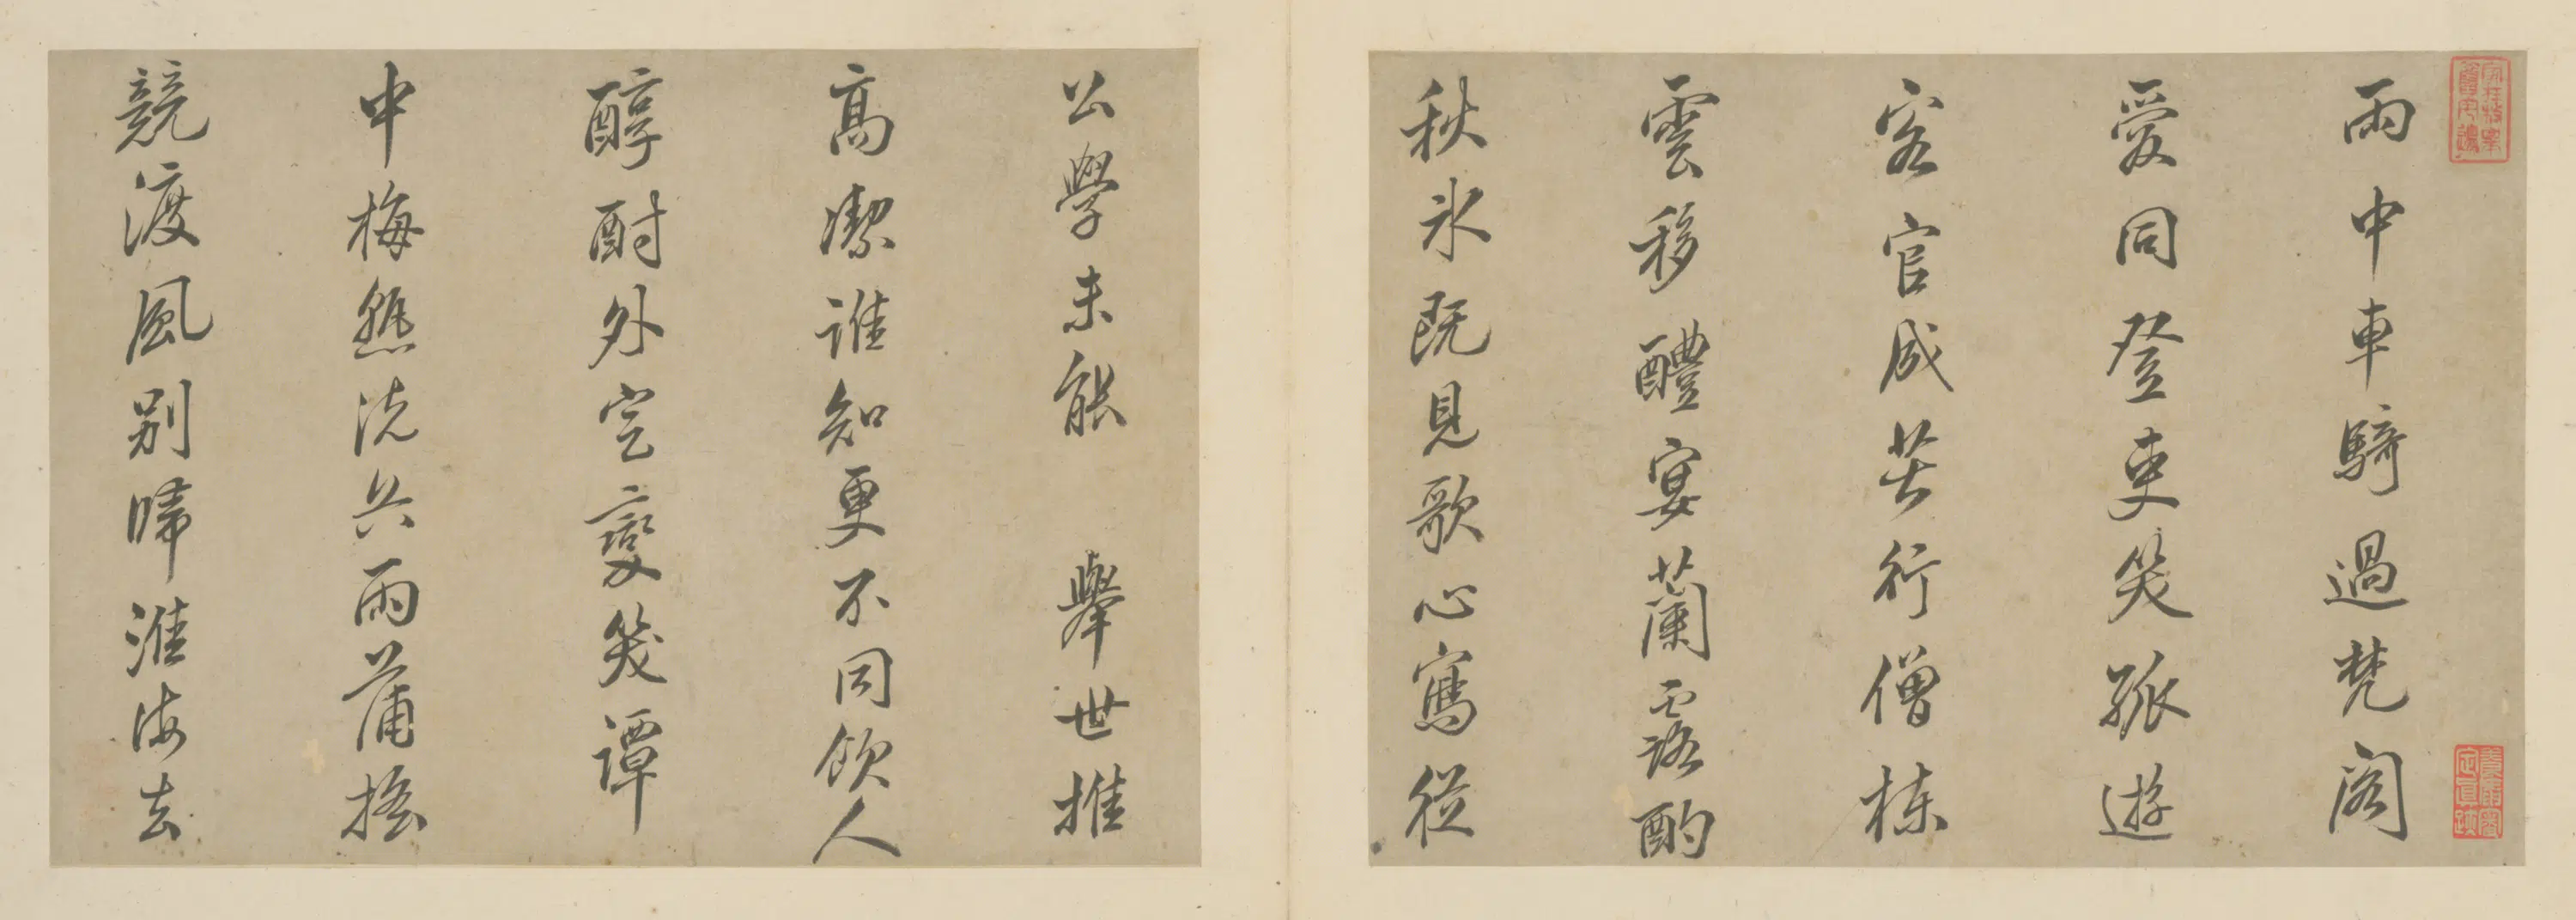 雨中車騎過梵閣
愛同登吏笑孤遊
客官成苦行僧棟
雲移醴宴蘭露酌
秋氷既見歌心寫從
公學未能 舉世推
高潔誰知更不同飲人
醇酎外定變笑譚
中梅熟洗兵雨蒲搖
競渡風別帰淮海去